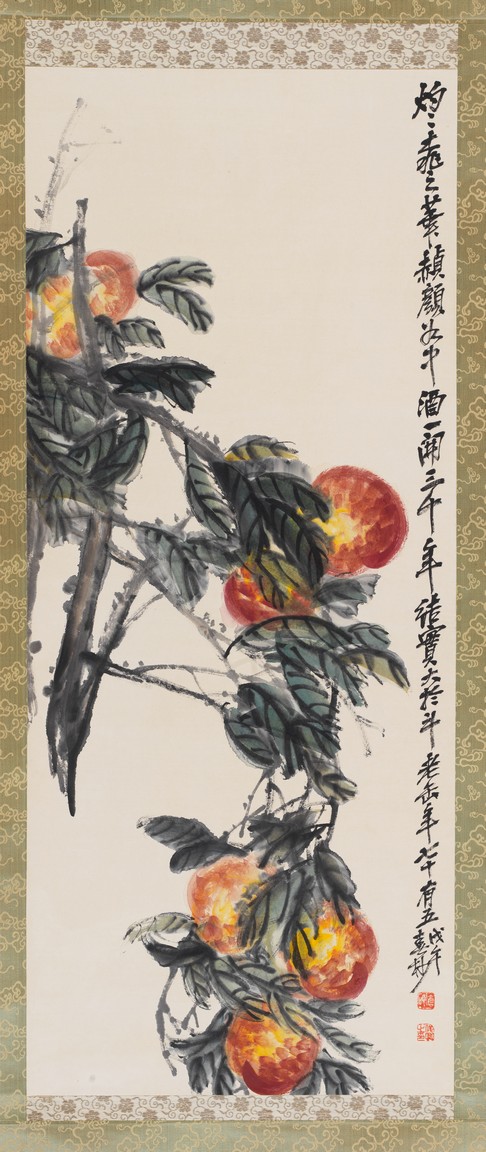 灼〻桃之華赬顏如中酒一開三千年結實大於斗老缶年七十有五戊午
春杪